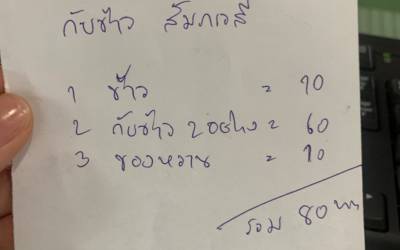 กับข้าว สัมภเวสี
1 ข้าว = 10
2 กับข้าว 2 อย่าง = 60
3 ของหวาน = 10
รวม 80 บาท